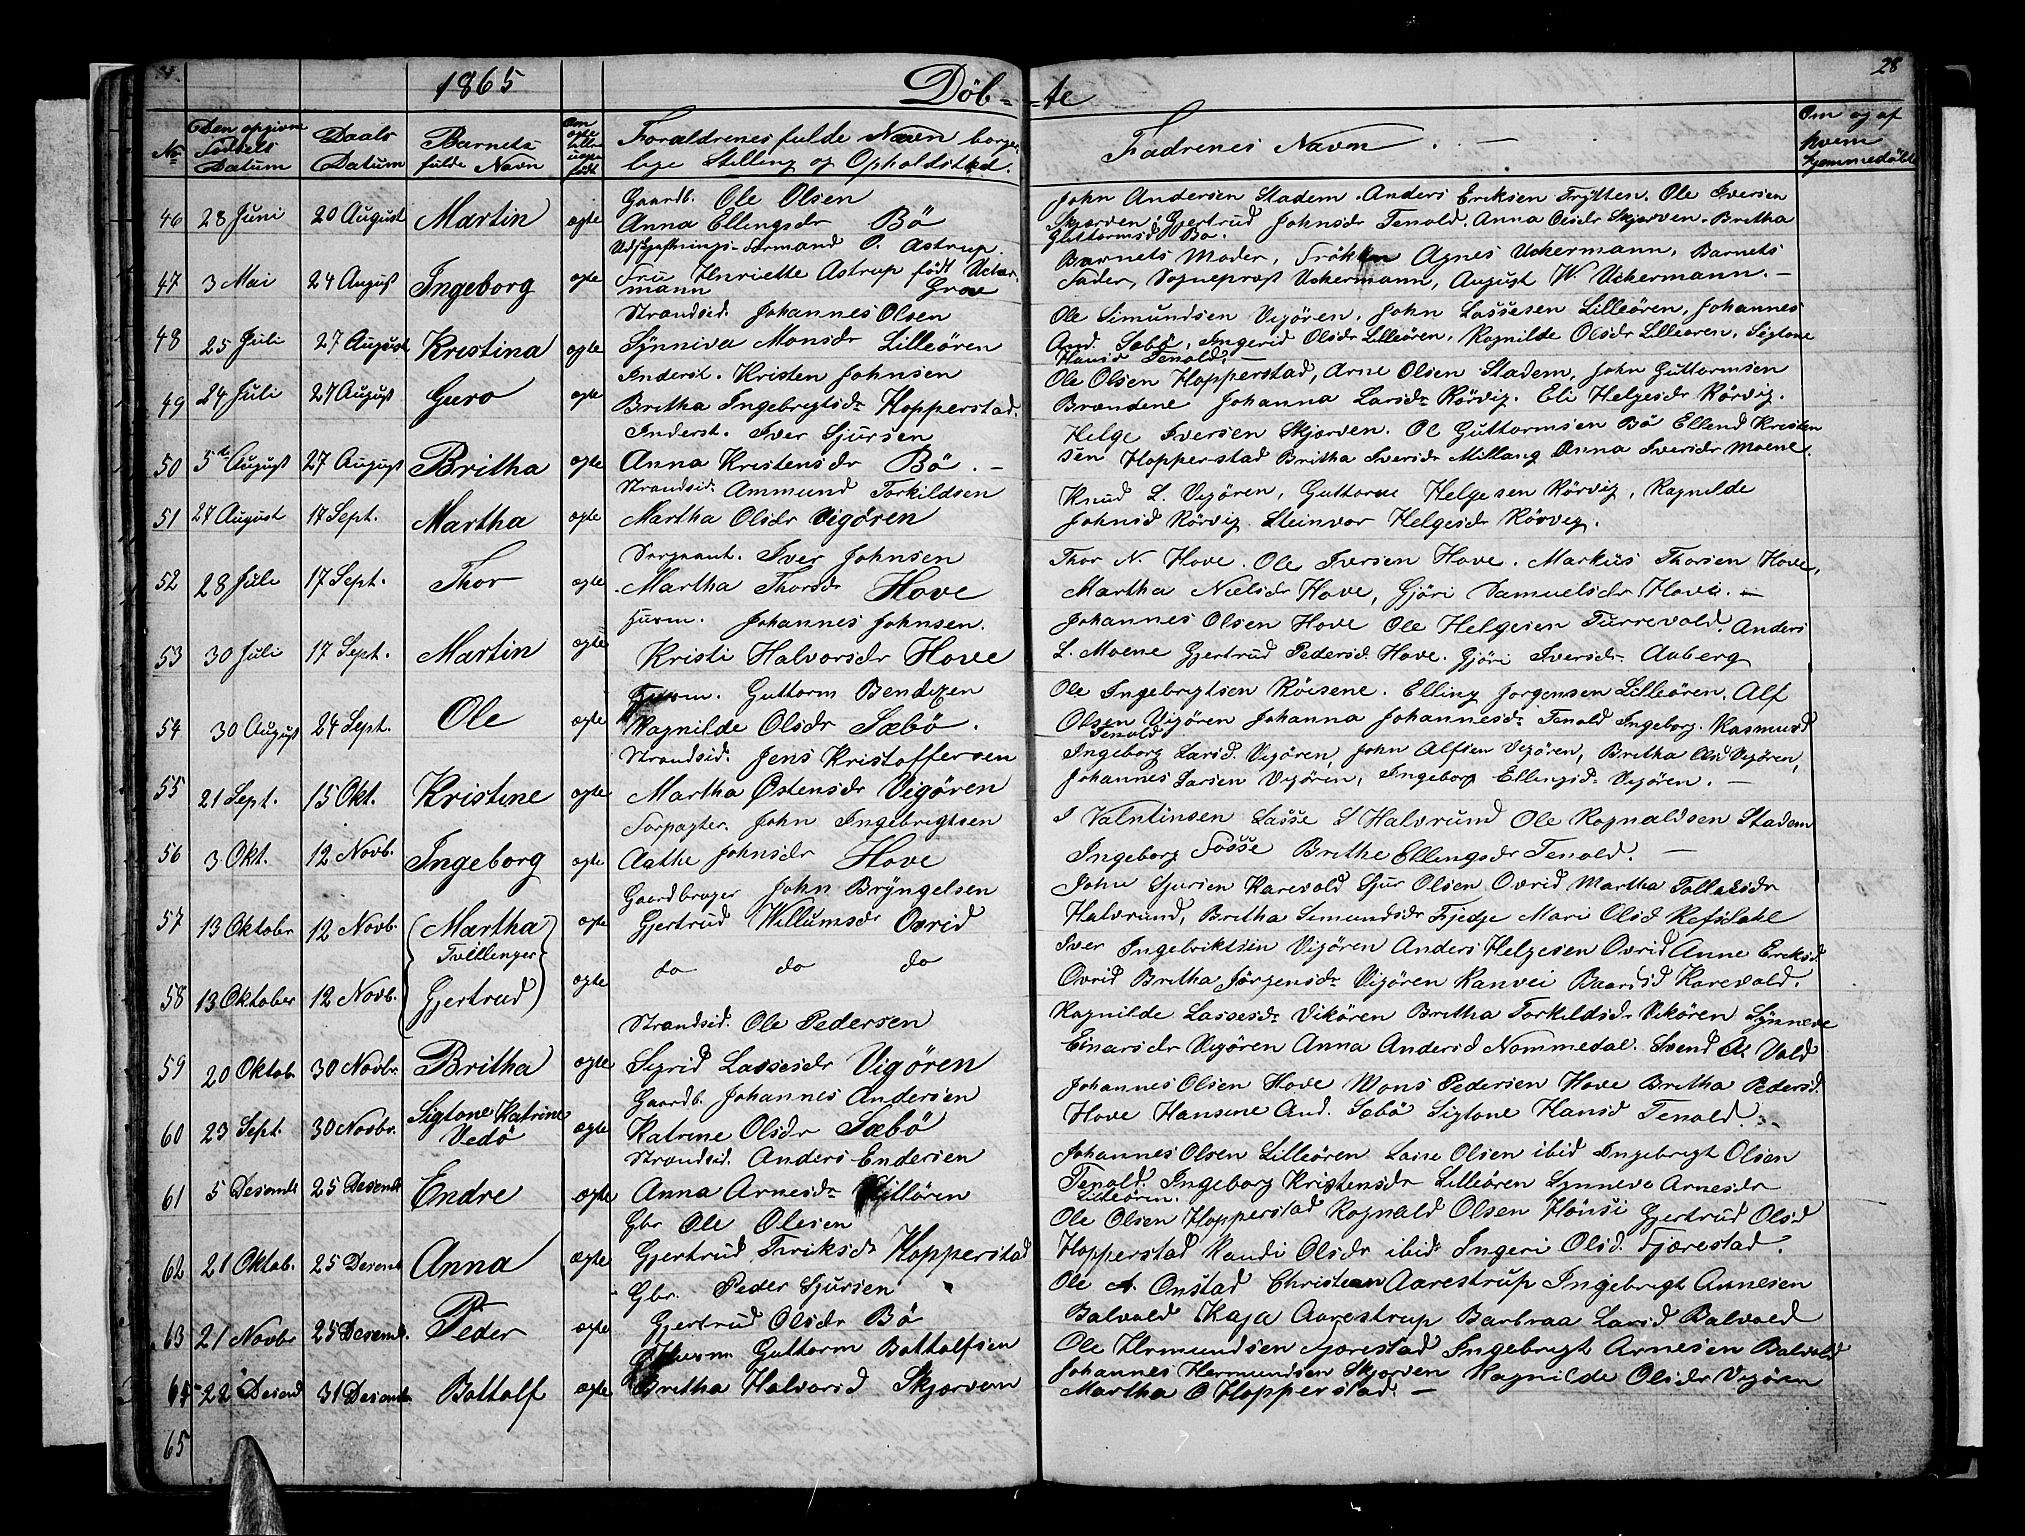 28
1865 Döb- -te
No Den opgivne Fødsels Datum Daabs Datum Barnets fulde Navn Om ægte eller uægte født Foraldrenes fulde Navn borgelige Stilling og Opholdsted. Fadrenes Navn. Om og af hvem hjemmedöbte
46 28 Juni 20 August Martin ægte Gaardb. Ole Olsen
Anna Ellingsdr Bö
John Andersen Stadem. Anders Eriksen Trÿtten. Ole Iversen
Skjerven, Gjertrud Johnsdr Tenold. Anna Olsdr Skjerven. Britha
Guttormsd Bö.
47 3 Mai 24 August Ingeborg ægte Udskyftnings-Formand O. Astrup
Fru Henriette Astrup født Ucker
mann Grov
Barnets Moder, Frökken Agnes Uckermann, Barnets
Fader, Sognepræst Uckermann, August W. Uckermann. –
48 25 Juli 27 August Kristina ægte Strandsid. Johannes Olsen
Sÿnniva Monsdr Lilleören
Ole Simundsen Vigören. John Lassesen Lilleören, Johannes
And. Sæbö, Ingerid Olsdr Lilleören. Ragnilde Olsdr Lilleören, Sigtone
Hansd Tenold. –
49 24 Juli 27 August Guro ægte Inderst. Kristen Johnsen
Britha Ingebrigtsdr Hopperstad.
Ole Olsen Hopperstad, Arne Olsen Stadem, John Guttormsen
Brændene Johanna Larsdr Rörvig. Eli Helgesdr Rörvig.
50 5te August 27 August Britha ægte Inderst. Iver Sjursen
Anna Kristensdr Bö. –
Helge Iversen Skjerven. Ol Guttormsen Bö Ellend Kristen
sen Hopperstad Britha Iversdr Millang Anna Iversdr Moene.
51 27 August 17 Sept. Martha ægte Strandsid. Ammund Torkildsen
Martha Olsdr Vigören
Knud L. Vigören, Guttorm Helgesen Rörvig, Ragnilde
Johnsd Rörvig. Steinvor Helgesdr Rörvig.
52 28 Juli 17 Sept. Thor ægte Sergeant. Iver Johnsen
Martha Thorsdr Hove
Thor N. Hove. Ole Iversen Hove. Markus Thorsen Hove,
Martha Nielsdr Hove, Gjöri Samuelsdr Hove. –
53 30 Juli 17 Sept. Martin ægte Husm. Johannes Johnsen.
Kristi Halvorsdr Hove
Johannes Olsen Hove Ole Helgesen Turrevold. Anders
L. Moene Gjertrud Pedersd. Hove. Gjöri Iversdr Aaberg
54 30 August 24 Sept. Ole ægte Husm. Guttorm Bendixen
Ragnilde Olsdr Sæbö.
Ole Ingebrigtsen Röisene. Elling Jorgensen Lilleören. Alf
Olsen Vigören Johanna Johannesdr Tenold Ingeborg Rasmusd
Tenold
55 21 Sept. 15 Okt. Kristine ægte Strandsid. Jens Kristoffersen
Martha Østensdr Vigören
Ingeborg Larsd. Vigören, John Alfsen Vigören, Britha And Vigören,
Johannes Larsen Vigören, Ingeborg Ellingsd. Vigören. –
56 3 Okt. 12 Novb. Ingeborg ægte Forpagter. John Ingebrigtsen
Aathe Johnsdr Hove
I Valntinsen Lasse S Halvrund Ole Rognaldsen Stadem
Ingeborg Fosse Brithe Ellingsdr Tenold. –
57 13 Oktober 12 Novb. Martha ægte Gaardbruger John Brÿngelsen
Gjertrud Willumsdr Ovrid
John Sjursen Karevold Sjur Olsen Ovrid Martha Tollaksdr
Halvrund, Britha Simundsdr Fjedge Mari Olsd Refsdahl
Tvillinger
58 13 Oktober 12 Novb. Gjertrud ægte do do do
Iver Ingebriktsen Vigören Anders Helgesen Ovrid Anne Eriksd
Ovrid Britha Jörgensdr Vigören Ranvei Baardsd Karevold.
59 20 Oktob. 30 Novbr. Britha ægte Strandsid. Ole Pedersen
Sigrid Lassesdr Vigören
Ragnilde Lassesdr Vikören Britha Torkildsdr Vikören Sÿnneve
Einarsdr Vigören Anna Andersd Nommedal. Svend A. Vold
60 23 Sept. 30 Novbr. Sigtone Katrine
Vedö ægte Gaardb. Johannes Andersen
Katrine Olsdr Sæbö
Johannes Olsen Hove Mons Pedersen Hove Britha Pedersd.
Hove Hansine And. Sæbö Sigtone Hansd Tenold.
61 5 Desembr 25 Desembr Endre ægte Strandsid. Anders Endersen
Anna Arnesdr Lilleören
Johannes Olsen Lilleören Lasse Olsen ibid Ingebrigt Olsen
Tenold. Ingeborg Kristensdr Lilleören Synneve Arnesdr
Lilleören.
62 21 Oktob. 25 Desemb Anna ægte Gbr Ole Olesen
Gjertrud Eriksdr Hopperstad
Ole Olsen Hopperstad Rognald Olsen Hönsi Gjertrud Olsd
Hopperstad Randi Olsdr ibid. Ingeri Olsd. Fjærestad.
63 21 Novbr 25 Desemb. Peder ægte Gbr. Peder Sjursen
Gjertrud Olsdr Bö
Ole A. Onstad Christian Aarestrup Ingebrigt Arnesen
Balvold Kaja Aarestrup Barbraa Larsd Balvold
64 22 Desemb 31 Desemb. Bottolf ægte Husm Guttorm Bottolfsen
Britha Halvorsd Skjerven
Ole Hermundsen Fjærestad Ingebrigt Arnesen Balvold
Johannes Hermundsen Skjerven Ragnilde Olsdr Vigören
Martha O Hopperstad. –
65